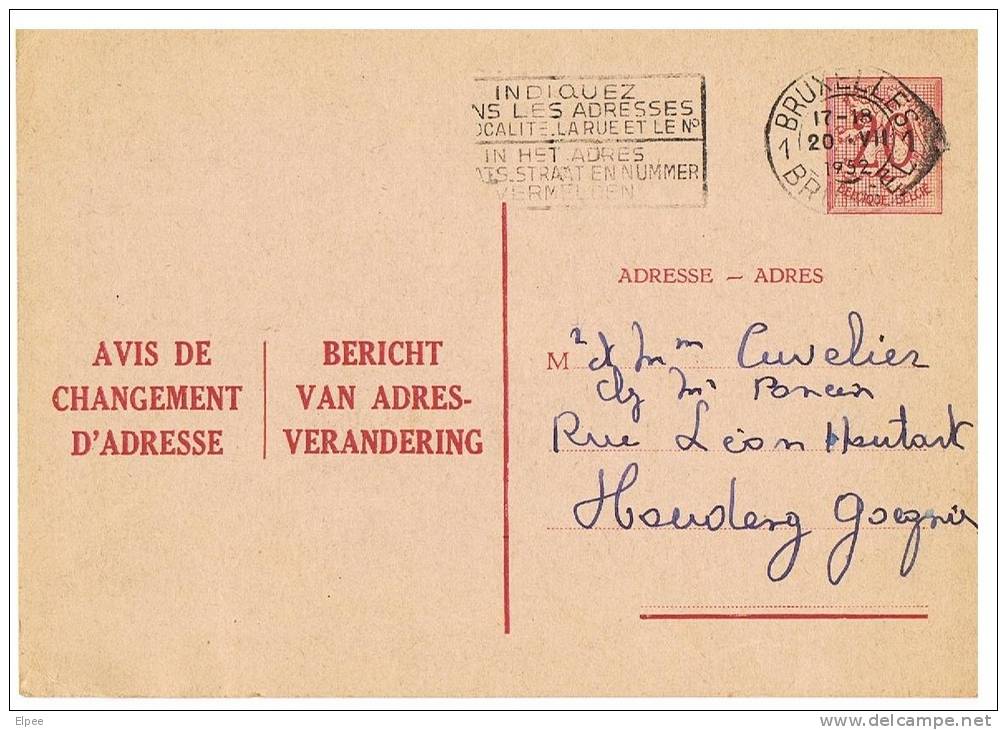 INDIQUEZ
NS LES ADRESSES
OCALITE. LA RUE ET LE Nº
IN HET ADRES
ATS. STRAAT EN NUMMER
VERMELDEN
BRUXELLES
17-18
1 20 ·VII 1
1952
BR
20
BELGIQUE·BELGIË
ADRESSE — ADRES
AVIS DE
CHANGEMENT
D'ADRESSE
BERICHT
VAN ADRES-
VERANDERING
Mr et Mm Cuvelier
chz Mr
Rue Léon Houtart
Houdeng Goegnies
Elpee
www.delcampe.net